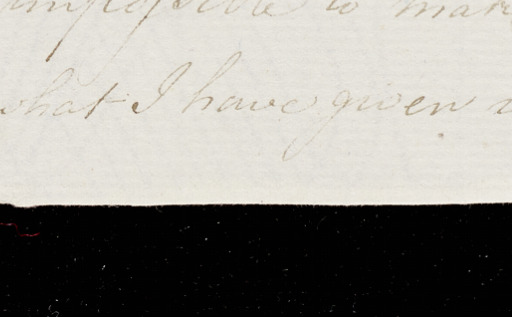 impossible to mar
what I have given